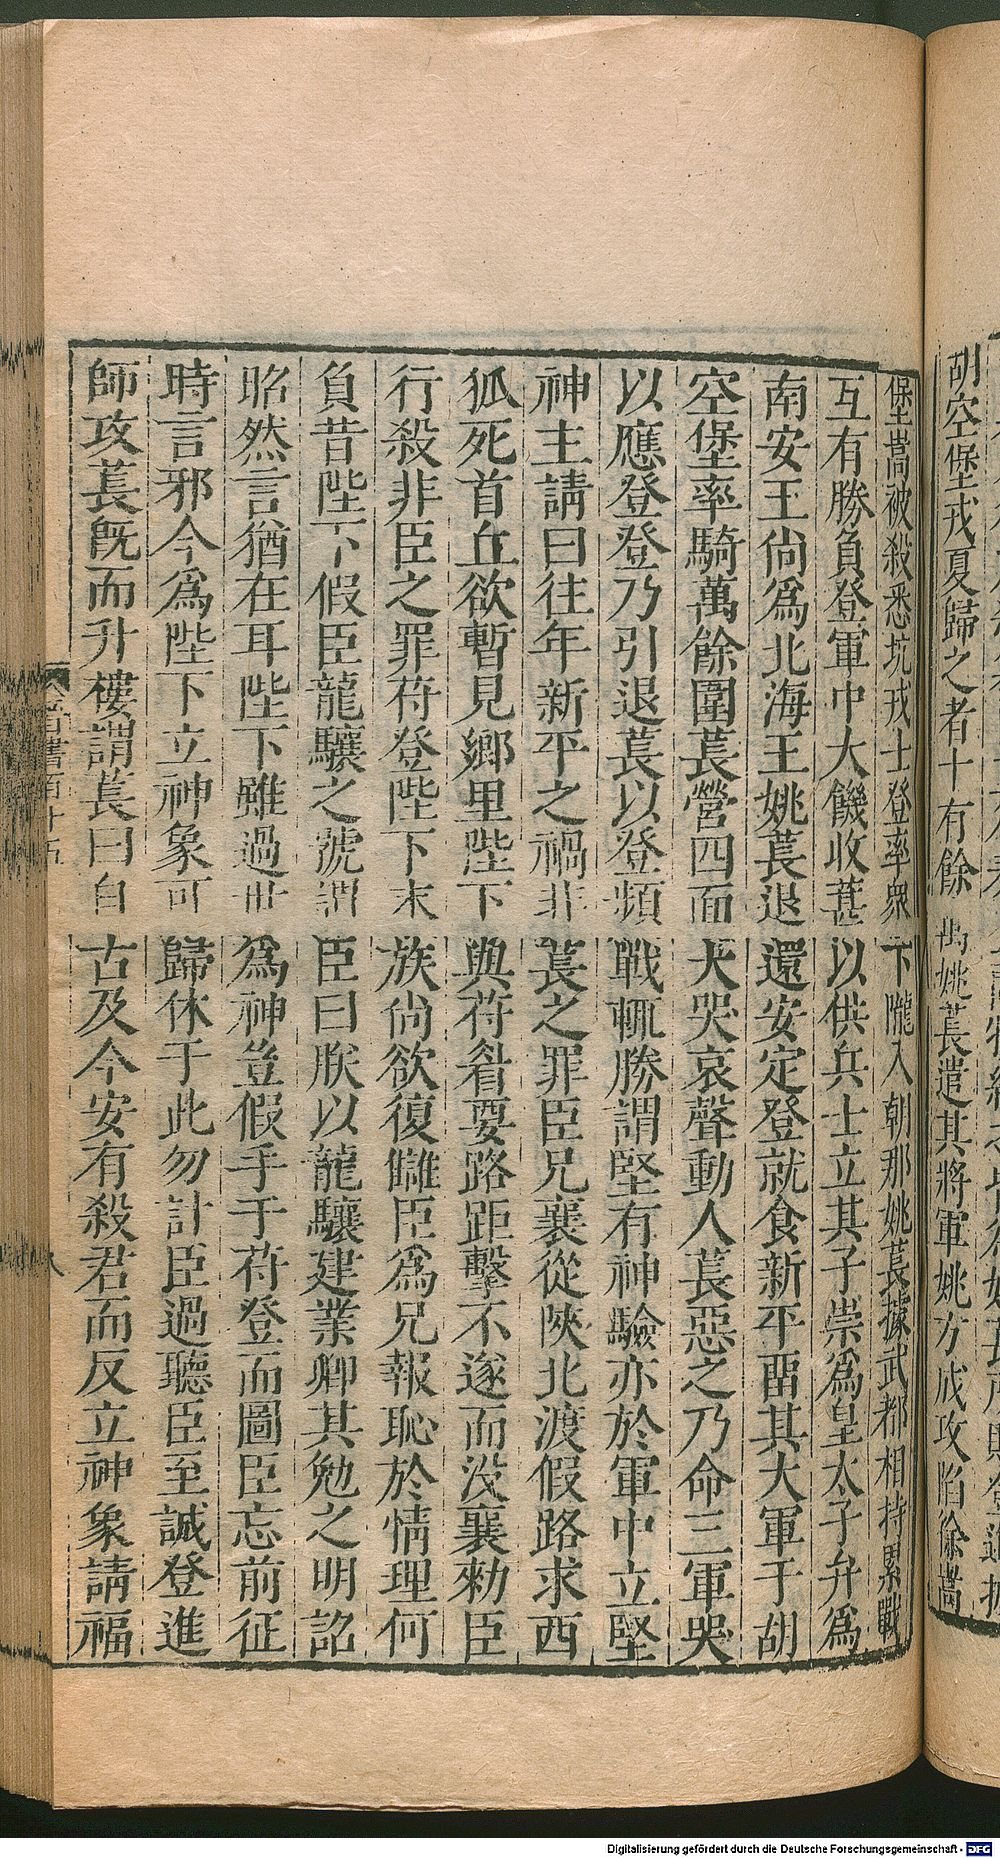 胡空堡戎夏歸之者十有餘萬姚萇遣其將軍姚方成攻陷徐嵩
堡嵩被殺悉坑戎士登率衆下隴入朝那姚萇據武都相持累戰
互有勝負登軍中大饑收葚以供兵士立其子崇爲皇太子弁爲
南安王尙爲北海王姚萇退還安定登就食新平畱其大軍于胡
空堡率騎萬餘圍萇營四面大哭哀聲動人萇惡之乃命三軍哭
以應登登乃引退萇以登頻戰輒勝謂堅有神驗亦於軍中立堅
神主請曰往年新平之禍非萇之罪臣兄襄從陝北渡假路求西
狐死首丘欲暫見鄉里陛下與苻眉要路距擊不遂而没襄勑臣
行殺非臣之罪苻登陛下末族尙欲復讎臣爲兄報恥於情理何
負昔陛下假臣龍驤之號謂臣曰朕以龍驤建業卿其勉之明詔
昭然言猶在耳陛下雖過世爲神豈假手于苻登而圖臣忘前征
時言邪今爲陛下立神象可歸休于此勿計臣過聽臣至誠登進
師攻萇旣而升樓謂萇曰自古及今安有殺君而反立神象請福
晉書百十五
Digitalisierung gefördert durch die Deutsche Forschungsgemeinschaft - DFG